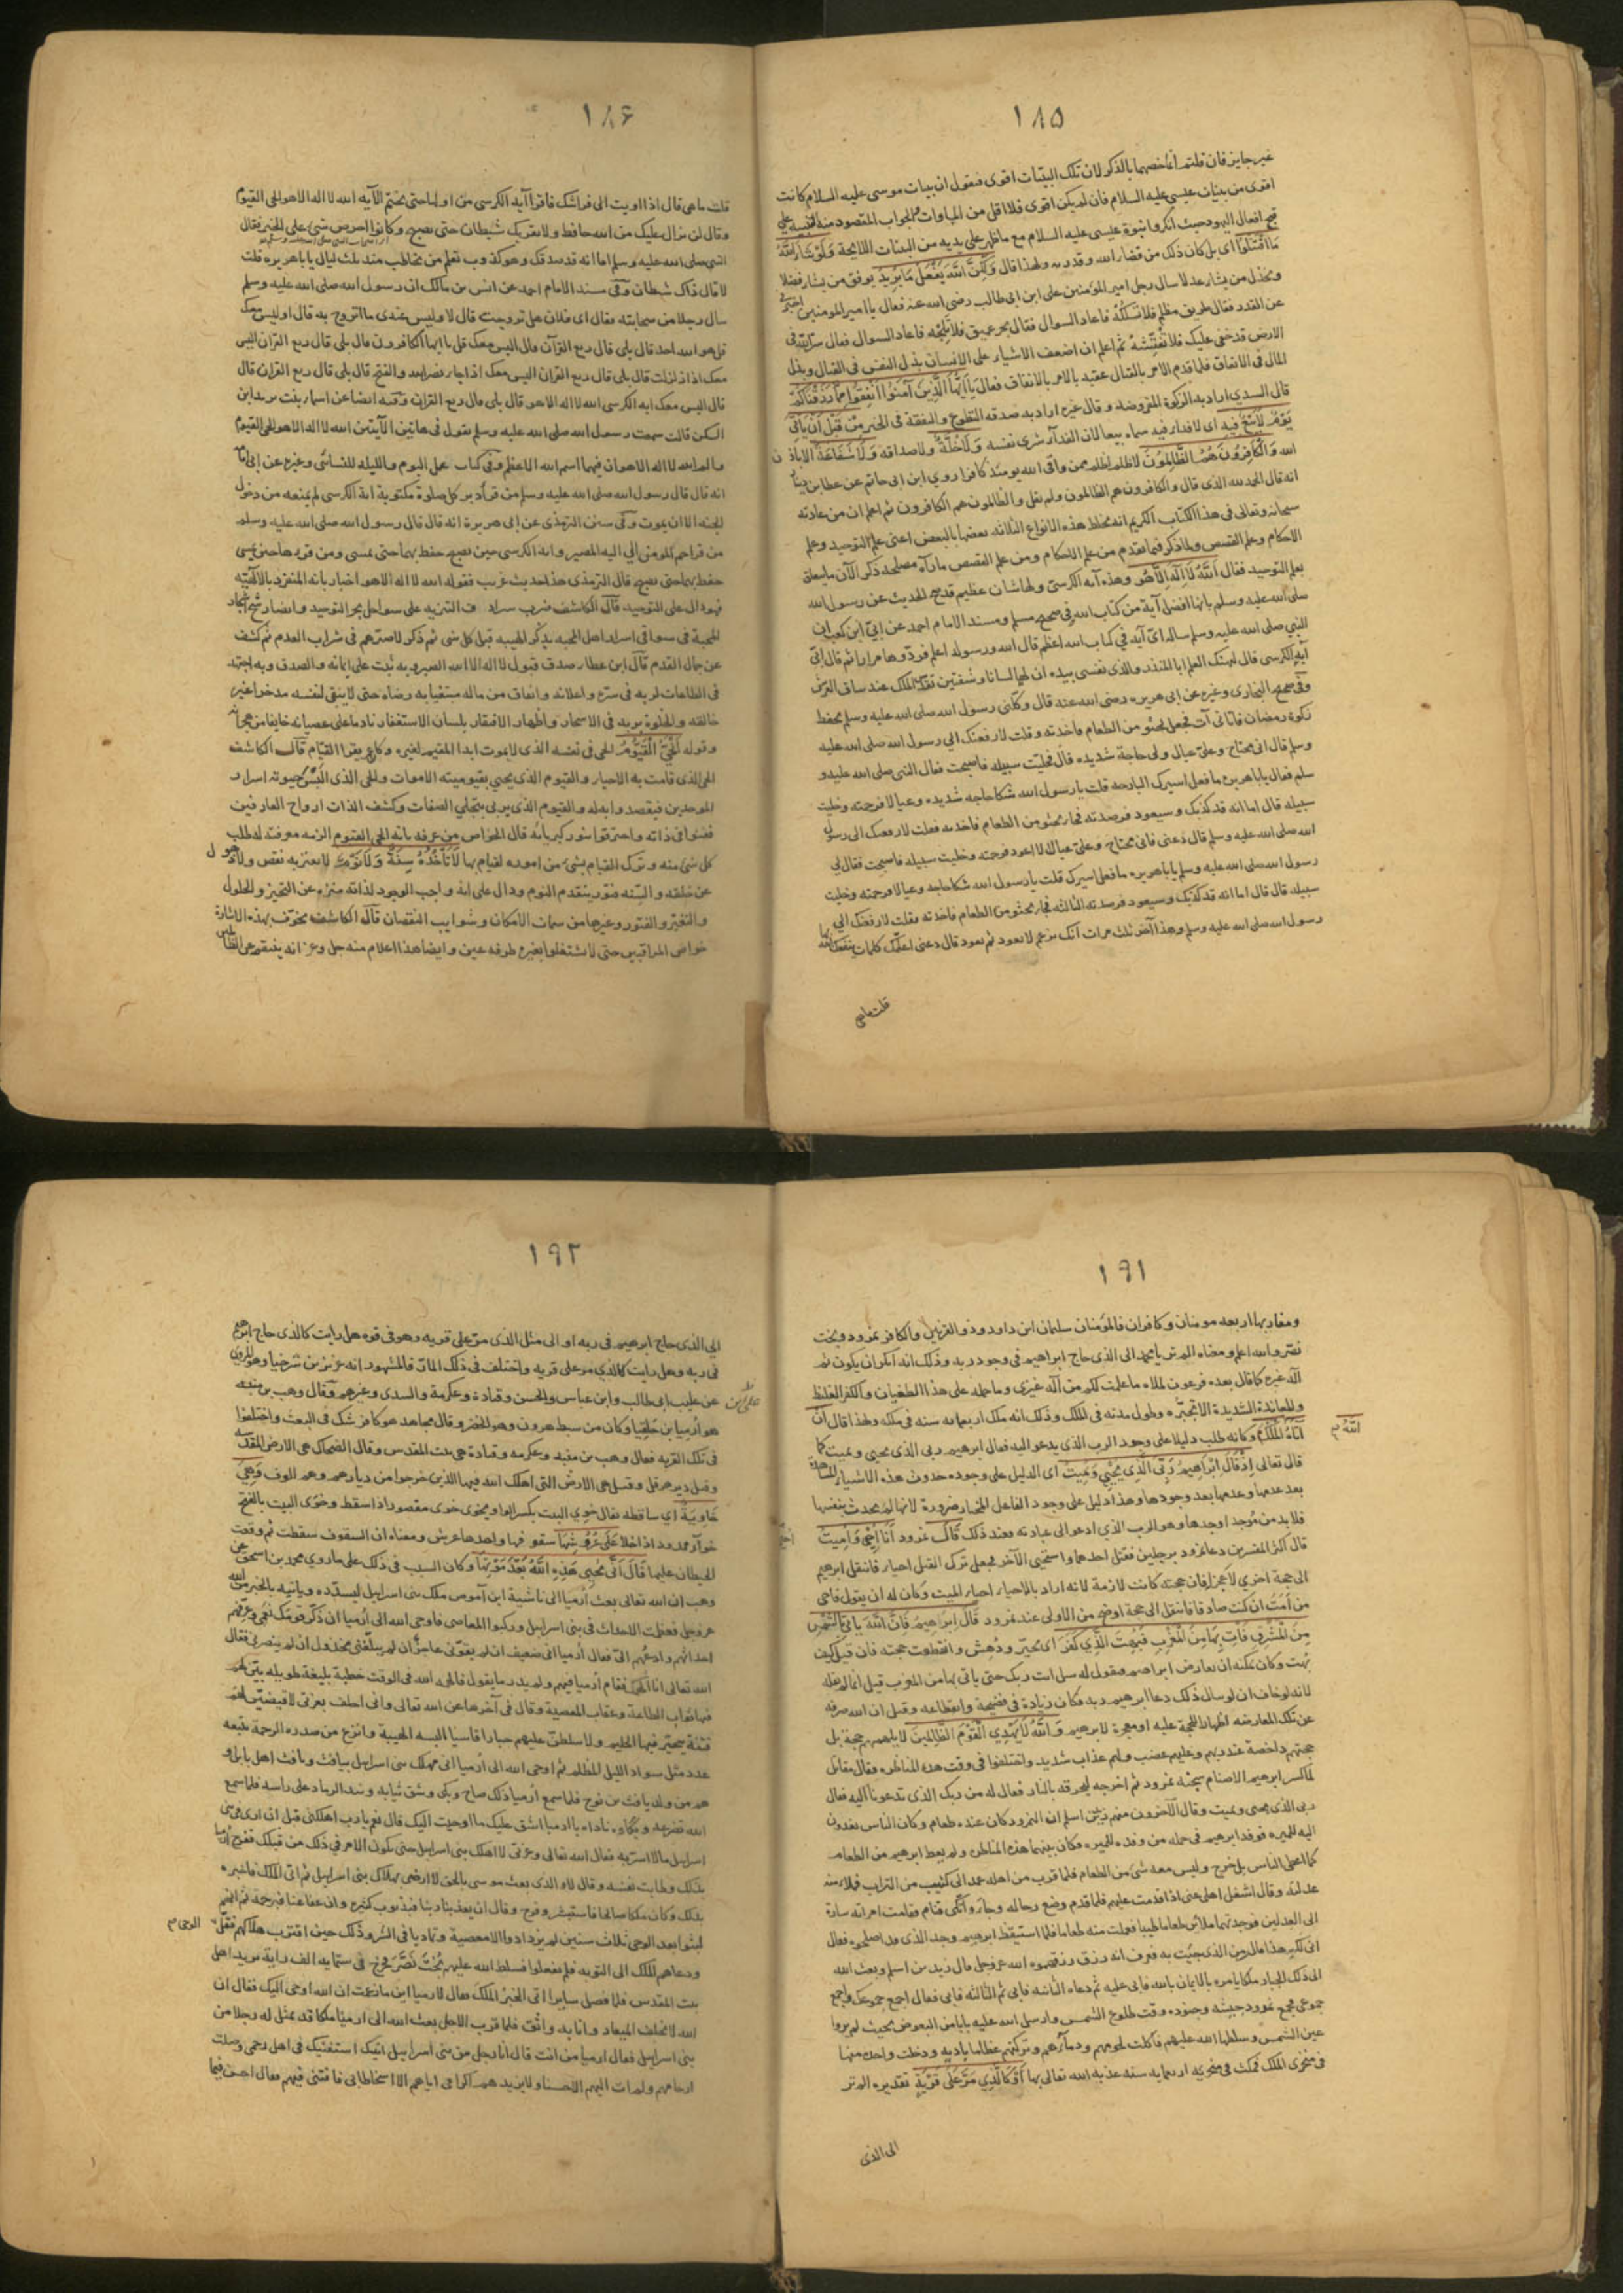 ١٨٥
غير جايز فان قلتم انما خصهما بالذكر لان تلك البينات اقوى فنقول ان بينات موسى عليه السلام كانت
اقوى من بينات عيسى عليه السلام فان لم يكن اقوى فلا اقل من المساوات والجواب المقصود منه التنبيه على
قبح افعال اليهود حيث انكروا نبوة عيسى عليه السلام مع ما ظهر على يديه من البينات اللايحة وَلَوْ شَآءَ اللّٰهُ
مَا اقْتَتَلُوْا اى بل كان ذلك من قضاء الله وقدره ولهذا قال وَلٰكِنَّ اللّٰهَ يَفْعَلُ مَا يُرِيدُ يوفق من يشاء فضلا
ويخذل من يشاء عدلا سال رجل امير المؤمنين على ابن ابى طالب رضى الله عنه فقال يا امير المومنين اخبرنى
عن القدر فقال طريق مظلم فلا تسلكه فاعاد السوال فقال بحر عميق فلا تلجه فاعاد السوال فقال سر الله فى
الارض قد خفى عليك فلا تفتشه ثم اعلم ان اضعف الاشياء على الانسان بذل النفس فى القتال وبذل
المال فى الانفاق فلما قدم الامر بالقتال عقبه بالامر بالانفاق فقال يَا اَيُّهَا الَّذِينَ آمَنُوا اَنْفِقُوا مِمَّا رَزَقْنَاكُمْ
قال السدي اراد به الزكوة المفروضة وقال غيره اراد به صدقه التطوع والنفقة فى الخير مِنْ قَبْلِ اَنْ يَاْتِيَ
يَوْمٌ لَا بَيْعٌ فِيهِ اى لا فداء فيه سماه بيعا لان الفداء شرى نفسه وَلَا خُلَّةٌ ولا صداقه وَلَا شَفَاعَةٌ الا باذن
الله وَالْكَافِرُونَ هُمُ الظَّالِمُونَ لا ظلم اظلم ممن وافى الله يومئذ كافرا روي ابن ابى حاتم عن عطا بن دينار
انه قال الحمد لله الذى قال والكافرون هم الظالمون ولم يقل والظالمون هم الكافرون ثم اعلم ان من عادته
سبحانه وتعالى فى هذا الكتاب الكريم انه يخلط هذه الانواع الثلاثه بعضها بالبعض اعنى علم التوحيد وعلم
الاحكام وعلم القصص ولما ذكر فيما تقدم من علم الاحكام ومن علم القصص ما رآه مصلحه ذكر الآن ما يتعلق
بعلم التوحيد فقال اَللّٰهُ لَا اِلٰهَ اِلَّا هُوَ وهذه آيه الكرسىّ ولها شان عظيم قد صح الحديث عن رسول الله
صلى الله عليه وسلم بانها افضل آية من كتاب الله فى صحيح مسلم ومسند الامام احمد عن ابيّ ابن كعب ان
النبى صلى الله عليه وسلم ساله اىّ آيه في كتاب الله اعظم قال الله ورسوله اعلم فردّدها مرارا ثم قال ابيّ
آيه الكرسى قال ليهنك العلم ابا المنذر والذى نفسى بيده ان لها لسانا وشفتين تقدّس الملك عند ساق العرش
وفى صحيح البخارى وغيره عن ابى هريره رضى الله عنه قال وكّلنى رسول الله صلى الله عليه وسلم بحفظ
زكوة رمضان فاتانى آت فجعل يحثو من الطعام فاخذته وقلت لارفعنك الى رسول الله صلى الله عليه
وسلم قال انى محتاج وعلىّ عيال ولى حاجة شديده قال فخليت سبيله فاصبحت فقال النبى صلى الله عليه و
سلم فقال يا ابا هريره ما فعل اسيرك البارحه قلت يا رسول الله شكا حاجه شديده وعيالا فرحمته وخليت
سبيله قال اما انه قد كذبك وسيعود فرصدته فجاء يحثو من الطعام فاخذته فقلت لارفعنك الى رسول
الله صلى الله عليه وسلم قال دعنى فانى محتاج وعلىّ عيال لا اعود فرحمته وخليت سبيله فاصبحت فقال لي
رسول الله صلى الله عليه وسلم يا ابا هريره ما فعل اسيرك قلت يا رسول الله شكا حاجه وعيالا فرحمته وخليت
سبيله قال قال اما انه قد كذبك وسيعود فرصدته الثالثه فجاء يحثو من الطعام فاخذته فقلت لارفعنك الى
رسول الله صلى الله عليه وسلم وهذا آخر ثلث مرات انك تزعم لا تعود ثم تعود قال دعنى اعلمك كلمات ينفعك الله بها
قلت ما هى
١٨۶
قلت ما هى قال اذا اويت الى فراشك فاقرا آية الكرسى من اولها حتى تختم الآيه الله لا اله الا هو الحى القيوم
وقال لن يزال عليك من الله حافظ ولا يقربك شيطان حتى تصبح وكانوا احرص شئ على الخير فقال
النبى صلى الله عليه وسلم اما انه قد صدقك وهو كذوب تعلم من تخاطب منذ ثلث ليال يا با هريره قلت
لا قال ذاك شيطان وفى مسند الامام احمد عن انس بن مالك ان رسول الله صلى الله عليه وسلم
سال رجلا من صحابته فقال اى فلان هل تزوجت قال لا وليس عندى ما اتزوج به قال اوليس معك
قل هو الله احد قال بلى قال ربع القرآن قال اليس معك قل يا ايها الكافرون قال بلى قال ربع القران اليس
معك اذا زلزلت قال بلى قال ربع القران اليس معك اذا جاء نصر الله والفتح قال بلى قال ربع القران قال
قال اليس معك ايه الكرسى الله لا اله الا هو قال بلى قال ربع القران وفيه ايضا عن اسماء بنت يزيد ابن
السكن قالت سمعت رسول الله صلى الله عليه وسلم يقول فى هاتين الآيتين الله لا اله الا هو الحى القيوم
والم الله لا اله الا هو ان فيهما اسم الله الاعظم وفى كتاب عمل اليوم والليله للنسائى وغيره عن ابى امامه
انه قال قال رسول الله صلى الله عليه وسلم من قرأ دبر كل صلوة مكتوبة اية الكرسى لم يمنعه من دخول
الجنه الا ان يموت وفى سنن الترمذى عن ابى هريرة انه قال قال رسول الله صلى الله عليه وسلم
من قرا حم المومن الى اليه المصير واية الكرسى حين يصبح حفظ بهما حتى يمسى ومن قراهما حين يمسى
حفظ بهما حتى يصبح قال الترمذى هذا حديث غريب فقوله الله لا اله الا هو اخبار بانه المنفرد بالالهيه
المحبة فى سواقى اسرار اهل المحبه بذكر الحبيبه قبل كل شى ثم ذكر لا صرفهم فى شراب العدم ثم كشف
عن جمال القدم قال ابن عطا صدق قبول لا اله الا الله الصبر وبه يثبت على ايمانه والصدق وبه اجتهد
خالقه والخلوة بربه فى الاسحار واظهار الافتقار بلسان الاستغفار نادما على عصيانه خايفا من هجرانه
وقوله اَلْحَيُّ الْقَيُّوْمُ الحى فى نفسه الذى لا يموت ابدا المقيم لغيره وكان عمر يقرا القيام قال الكاشف
الحى الذى قامت به الاحياء والقيوم الذى يحيى بقيوميته الاموات والحى الذى البس حيوته اسرار
الموحدين فبقصدوا به له والقيوم الذى يربى بتجلي الصفات وكشف الذات ارواح العارفين
ففنوا فى ذاته واحترقوا بنور كبريائه قال الخواص من عرفه بانه الحى القيوم الزمه معرفته له طلب
كل شئ منه وترك القيام بشئ من اموره لقيام بها لَا تَأْخُذُهُ سِنَةٌ وَلَا نَوْمٌ لا يعتريه نقص ولا ذهول
عن خلقه والسنه فتور يتقدم النوم ودال على انه واجب الوجود لذاته منزه عن التحيز والحلول
والتغير والفتور وغيرها من سمات الامكان وشوايب النقصان قال الكاشف يخوّف بهذه الاشارة
خواص المراقبين حتى لا يشتغلوا بغيره طرفه عين وايضا هذا اعلام منه جل وعز انه ينتقم من الظالمين
١٩١
ومغاربها اربعه مومنان وكافران فالمؤمنان سليمان ابن داود وذو القرنين والكافر نمرود وبخت
نصر والله اعلم ومعناه الم تر يا محمد الى الذى حاج ابراهيم فى وجود ربه وذلك انه انكر ان يكون ثم
اله غيره كما قال بعده فرعون لملاه ما علمت لكم من اله غيرى وما حمله على هذا الطغيان والكفر الغليظ
والمعاندة الشديدة الا تجبّره وطول مدته فى الملك وذلك انه ملك اربعمايه سنه فى ملكه ولهذا قال اَنْ
اللّٰهُ
آتَاهُ الْمُلْكَ وكانه طلب دليلا على وجود الرب الذى يدعو اليه فقال ابرهيم ربى الذى يحيى ويميت كما
قال تعالى اِذْ قَالَ اِبْرَاهِيمُ رَبِّيَ الَّذِى يُحْيِي وَيُمِيتُ اى الدليل على وجوده حدوث هذه الاشياء المشاهدة
بعد عدمها وعدمها بعد وجودها وهذا دليل على وجود الفاعل المختار ضرورة لانها لم يحدث بنفسها
فلا بد من مُوجد اوجدها وهو الرب الذى ادعو الى عبادته فعند ذلك قَالَ نمرود اَنَا اُحْيِي وَاُمِيتُ
قال اكثر المفسرين دعا نمرود برجلين فقتل احدهما واستحيى الآخر فجعل ترك القتل احياء فانتقل ابرهيم
الى حجة اخرى لا عجزا فان حجته كانت لازمة لانه اراد بالاحياء احياء الميت وكان له ان يقول فاحى
من اَمَتَّ ان كنت صادقا فانتقل الى حجة اوضح من الاولى عند نمرود قَالَ اِبْرَاهِيمُ فَاِنَّ اللّٰهَ يَاْتِي بِالشَّمْسِ
مِنَ الْمَشْرِقِ فَاْتِ بِهَا مِنَ الْمَغْرِبِ فَبُهِتَ الَّذِي كَفَرَ اى تحيّر ودُهِش وانقطعت حجته فان قيل كيف
بُهت وكان يمكنه ان يعارض ابراهيم فيقول له سل انت ربك حتى ياتى بها من المغرب قيل انما لم يقله
لانه لو خاف ان لو سال ذلك دعا ابرهيم ربه فكان زيادة فى فضيحته وانقطاعه وقيل ان الله صرفه
عن تلك المعارضه اظهارا للحجة عليه او معجزة لابرهيم وَاللّٰهُ لَا يَهْدِي الْقَوْمَ الظَّالِمِينَ لا يلهمهم حجة بل
حجتهم داحضة عند ربهم وعليهم غضب ولهم عذاب شديد واختلفوا فى وقت هذه المناظره فقال مقاتل
لما كسر ابرهيم الاصنام سجنه نمرود ثم اخرجه ليحرقه بالنار فقال له من ربك الذى تدعونا اليه فقال
ربى الذى يحيى ويميت وقال الآخرون منهم زيد بن اسلم ان النمرود كان عنده طعام وكان الناس يغدون
اليه للميره فوفد ابرهيم فى جمله من وفد للميره وكان بينهما هذه المناظره ولم يعط ابرهيم من الطعام
كما اعطى الناس بل خرج وليس معه شئ من الطعام فلما قرب من اهله عمد الى كثيب من التراب فملا منه
عدليه وقال اشغل اهلى عنى اذا قدمت عليهم فلما قدم وضع رحاله وجاء واتّكى فنام فقامت امراته سارة
الى العدلين فوجدتهما ملآنين طعاما طيبا فعملت منه طعاما فلما استيقظ ابرهيم وجد الذى قد اصلحوه فقال
انى لكم هذا قال من الذى جيت به فعرف انه رزق رزقهموه الله عز وجل قال زيد بن اسلم وبعث الله
الى ذلك الجبار ملكا يامره بالايمان بالله فابى عليه ثم دعاه الثانيه فابى ثم الثالثه فابى فقال اجمع جموعك واجمع
جموعى فجمع نمرود جيشه وجنوده وقت طلوع الشمس وارسل الله عليه بابا من البعوض بحيث لم يروا
عين الشمس وسلطها الله عليهم فاكلت لحومهم ودمآءهم وتركتهم عظاما باديه ودخلت واحده منها
فى منخرى الملك فمكث فى منخريه اربعمايه سنه عذبه الله تعالى بها اَوْ كَالَّذِي مَرَّ عَلٰى قَرْيَةٍ تقديره الم تر
الى الذى
١٩٢
الى الذى حاج ابرهيم فى ربه او الى مثل الذى مرّ على قريه وهو فى قوه هل رايت كالذى حاج ابرهيم
فى ربه وهل رايت كالذى مر على قريه واختلف فى ذلك المارّ فالمشهور انه عزير بن شرخيا وهو المروى
على ابن
عن على بن ابى طالب وابن عباس والحسن وقتادة وعكرمة والسدى وغيرهم وقال وهب بن منبه
هو ارميا بن حلقيا وكان من سبط هرون وهو الخضر وقال مجاهد هو كافر شك فى البعث واختلفوا
فى تلك القريه فقال وهب بن منبه وعكرمه وقتادة هى بيت المقدس وقال الضحاك هى الارض المقدسه
وقيل دير هرقل وقيل هى الارض التى اهلك الله فيها الذين خرجوا من ديارهم وهم الوف وَهِيَ
خَاوِيَةٌ اي ساقطه يقال خوِي البيت بكسر الواو يخوى خوى مقصورا اذا سقط وخوَى البيت بالفتح
خوآء ممدود اذا خلا عَلٰى عُرُوْشِهَا سقوفها واحدها عرش ومعناه ان السقوف سقطت ثم وقعت
الحيطان عليها قَالَ اَنّٰى يُحْيِي هٰذِهِ اللّٰهُ بَعْدَ مَوْتِهَا وكان السبب فى ذلك على ما روي محمد بن اسحق عن
وهب ان الله تعالى بعث ارميا الى ناشية ابن آموص ملك بنى اسرايل ليسدده وياتيه بالخبر من الله
عز وجل فعظمت الاحداث فى بنى اسرايل وركبوا المعاصى فاوحى الله الى ارميا ان ذكّر قومك نعمى وعرّفهم
احداثهم وادعهم الىّ فقال ارميا انى ضعيف ان لم يقوّنى عاجز ان لم يبلّغنى مخذول ان لم ينصرنى فقال
الله تعالى انا الهمك فقام ارميا فيهم ولم يدر ما يقول فالهمه الله فى الوقت خطبة بليغة طويله بيّن لهم
فيها ثواب الطاعة وعقاب المعصية وقال فى آخرها عن الله تعالى وانى احلف بعزتى لاقيضنّ لهم
فتنة يتحيّر فيها الحليم ولاسلطنّ عليهم جبارا قاسيا البسه الهيبة وانزع من صدره الرحمة يتبعه
عدد مثل سواد الليل المظلم ثم اوحى الله الى ارميا انى مهلك بنى اسرايل بيافث ويافث اهل بابل و
هم من ولد يافث بن نوح فلما سمع ارميا ذلك صاح وبكى وشق ثيابه ونبذ الرماد على راسه فلما سمع
الله تضرعه وبكاوه ناداه يا ارميا اشق عليك ما اوحيت اليك قال نعم يا رب اهلكنى قبل ان ارى فى بنى
اسرايل ما لا اسر به فقال الله تعالى وعزتى لا اهلك بنى اسرايل حتى يكون الامر فى ذلك من قبلك ففرح ارميا
بذلك وطابت نفسه وقال لا والذى بعث موسى بالحق لا ارضى بهلاك بنى اسرايل ثم اتى الملك فاخبره
بذلك وكان ملكا صالحا فاستبشر وفرح وقال ان يعذبنا ربنا فبذنوب كثيره وان عفا عنا فبرحمته ثم انهم
لبثوا بعد الوحى ثلاث سنين لم يزدادوا الا معصية وتماديا فى الشر وذلك حين اقترب هلاكهم فقلّ
الوحى
ودعاهم الملك الى التوبه فلم يفعلوا فسلط الله عليهم بُخْتَ نَصَّرَ فخرج فى ستمايه الف رايه يريد اهل
بيت المقدس فلما فصل سايرا اتى الخبر الملك فقال لارميا اين ما زعمت ان الله اوحى اليك فقال ان
الله لا يخلف الميعاد وانا به واثق فلما قرب الاجل بعث الله الى ارميا ملكا قد تمثل له رجلا من
بنى اسرايل فقال ارميا من انت قال انا رجل من بنى اسرايل اتيتك استفتيك فى اهل رحمى وصلت
ارحامهم ولم ات اليهم الا حسنا ولا يزيدهم اكرامى اياهم الا اسخاطا لى فافتنى فيهم فقال احسن فيما